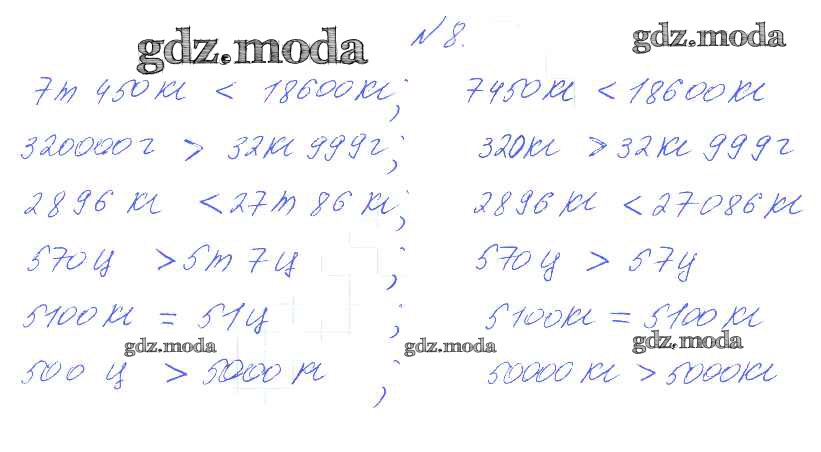 gdz.moda №8. gdz.moda
7т 450кг < 18600кг; 7450кг < 18600кг
320000г > 32кг 999г; 320кг > 32кг 999г
2896 кг < 27т 86 кг; 2896 кг < 27086кг
570ц > 5т 7ц; 570ц > 57ц
5100кг = 51ц; 5100кг = 5100кг
gdz.moda gdz.moda gdz.moda
500 ц > 5000 кг; 50000кг > 5000кг